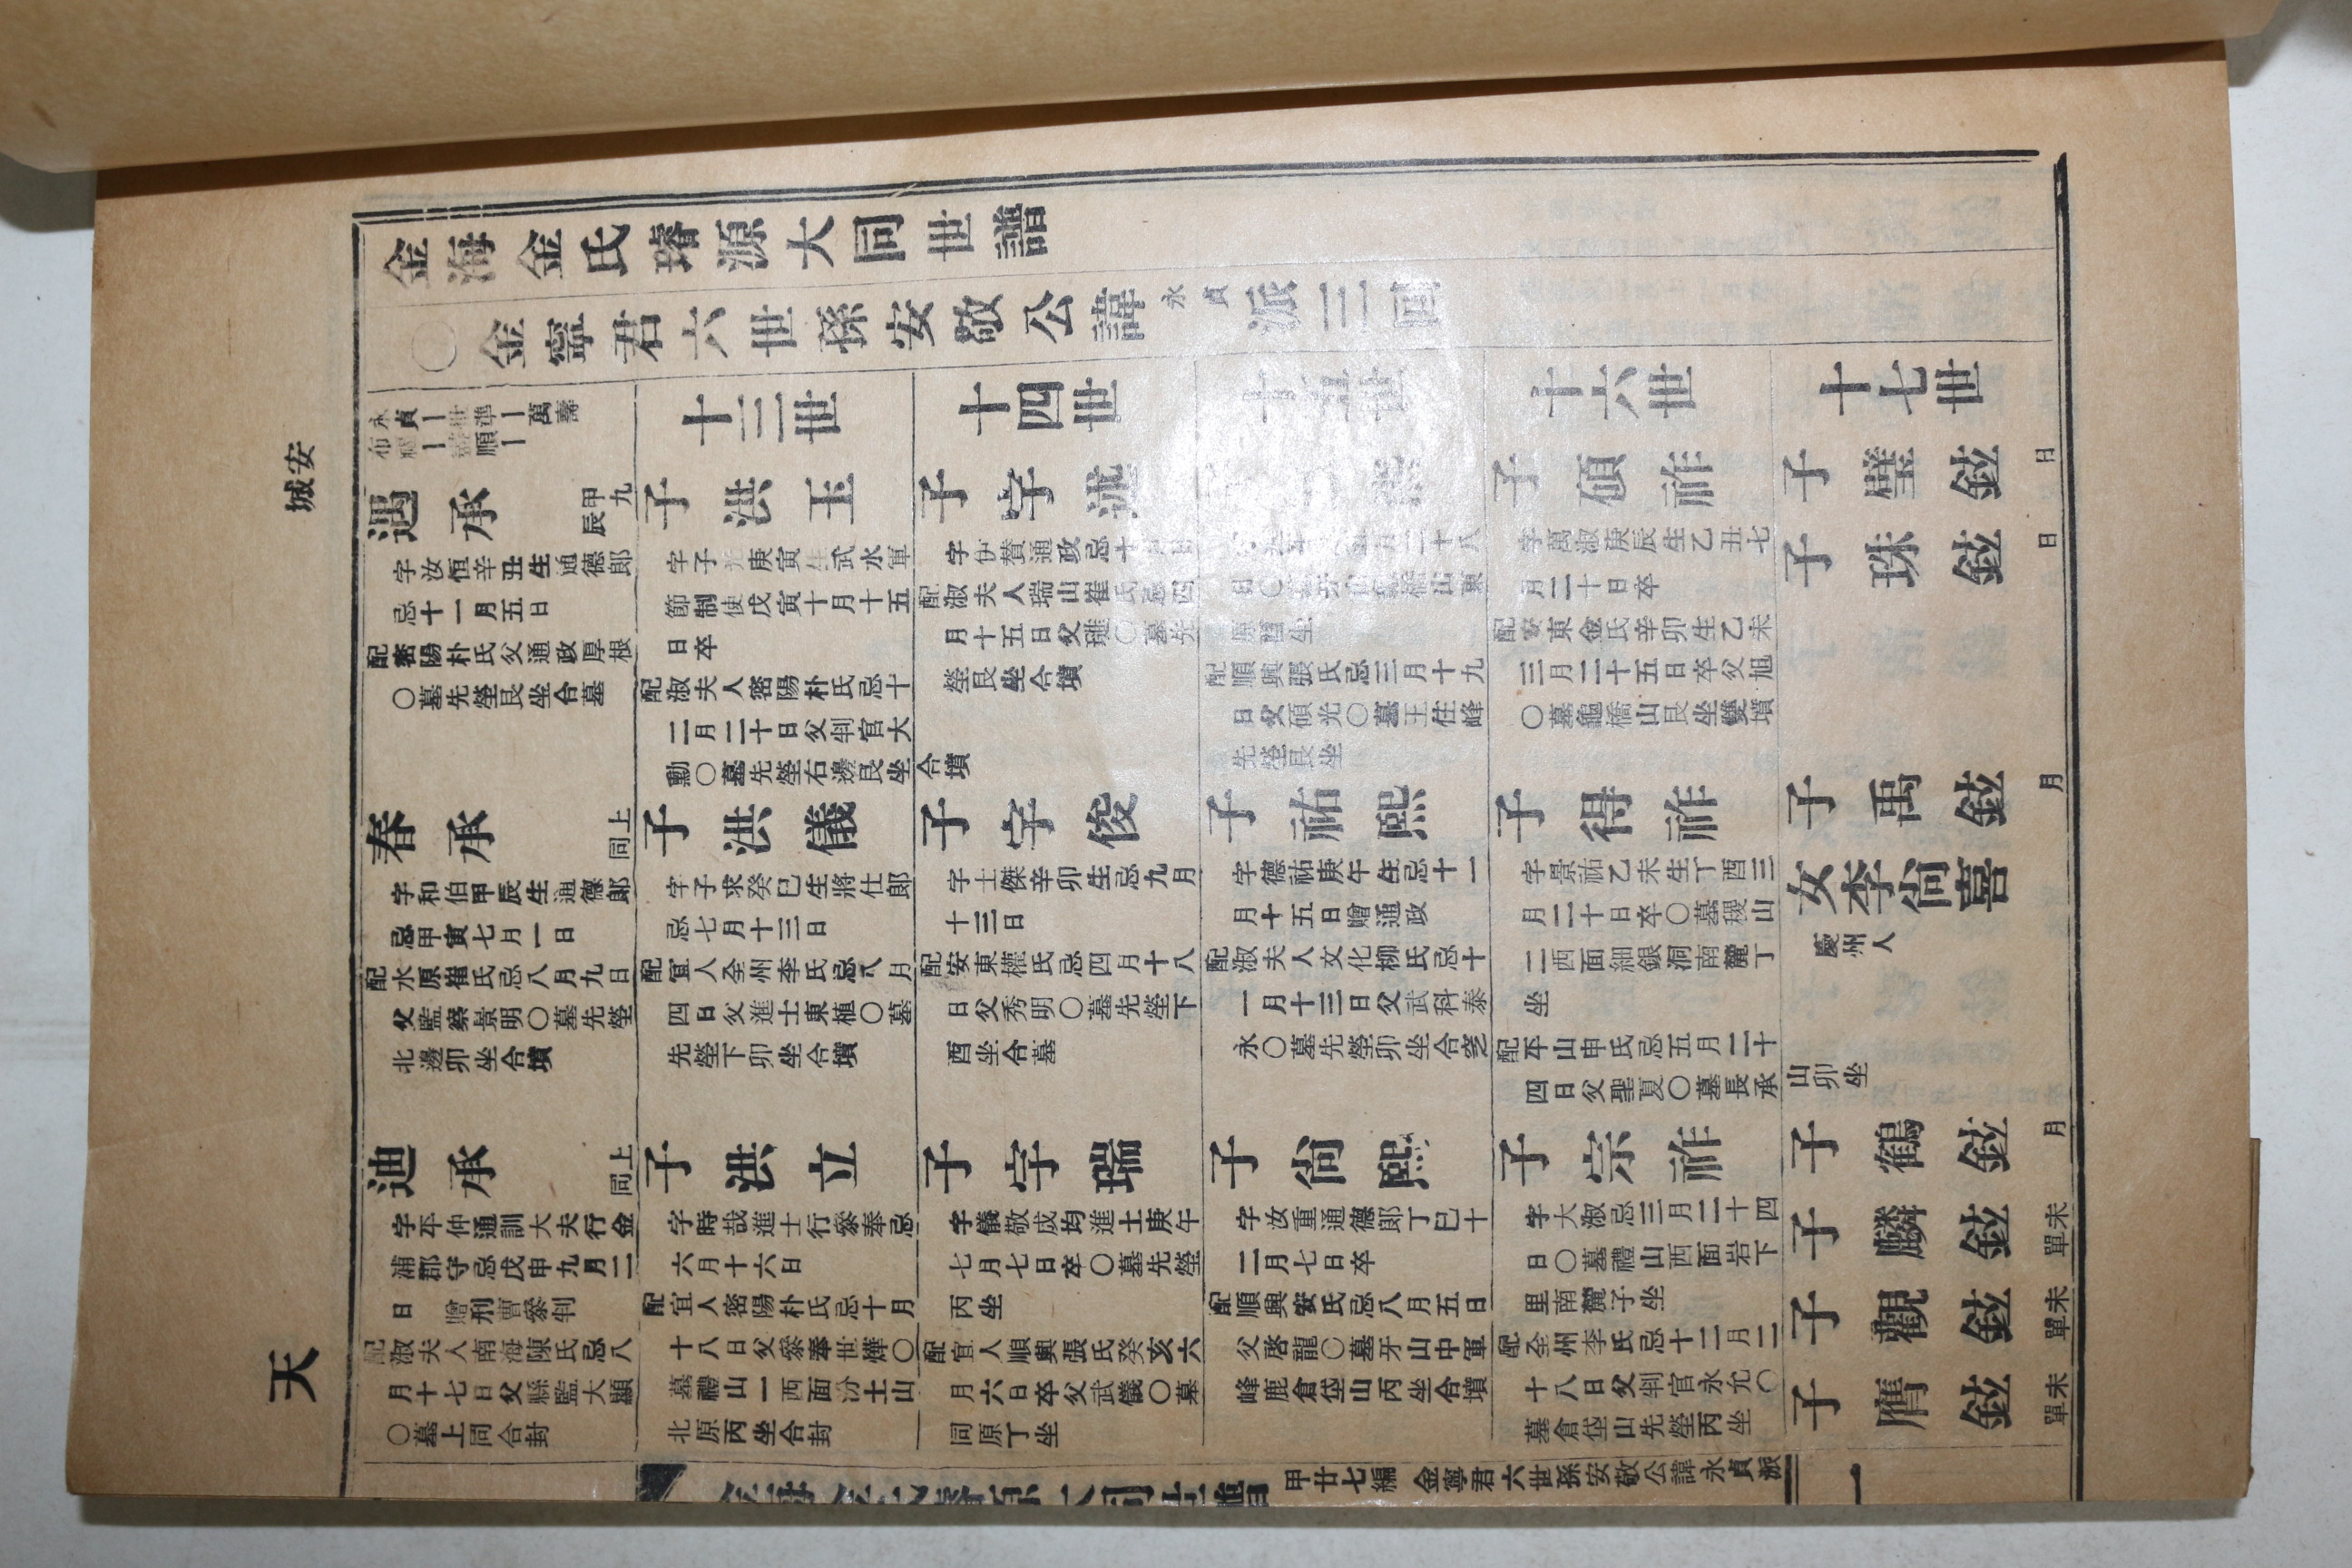 金海金氏璿源大同世譜
〇金寧君六世孫安敬公諱永貞派三回
永貞ー世準ー萬壽
遇承
九甲辰
字汝恒辛丑生通德郎
忌十一月五日
配密陽朴氏父通政厚根
〇墓先塋艮坐合墓
春承
上同
字和伯甲辰生通德郎
忌甲寅七月一日
配水原崔氏忌八月九日
父監察景明〇墓先塋
北邊卯坐合墳
迪承
上同
字平仲通訓大夫行金
浦郡守忌戊申九月二
日 贈刑曹參判
配淑夫人南海陳氏忌八
月十七日父縣監大顯
〇墓上同合封
十三世
子洪玉
字子光庚寅生武水軍
節制使戊寅十月十五
日卒
配淑夫人密陽朴氏忌十
二月二十日父判官大
勳〇墓先塋右邊艮坐合墳
子洪儀
字子求癸巳生將仕郎
忌七月十三日
配宜人全州李氏忌八月
四日父進士東植〇墓
先塋下卯坐合墳
子洪立
字時哉進士行參奉忌
六月十六日
配宜人密陽朴氏忌十月
十八日父參奉世燁〇
墓禮山一西面汾土山
北原丙坐合封
十四世
子字述
字伊贊通政忌十
配淑夫人瑞山崔氏忌四
月十五日父璡〇墓先
塋艮坐合墳
子字俊
字士傑辛卯生忌九月
十三日
配安東權氏忌四月十八
日父秀明〇墓先塋下
酉坐合墓
子字瑞
字儀敬成均進士庚午
七月七日卒〇墓先塋
丙坐
配宜人順興張氏癸亥六
月六日卒父武儀〇墓
同原丁坐
配順興張氏忌三月十九
日父碩光〇墓王住峰
先塋艮坐
子祐熙
字德祐庚午生忌十一
月十五日贈通政
配淑夫人文化柳氏忌十
一月十三日父武科泰
永〇墓先塋卯坐合窆
子尙熙
字汝重通德郎丁巳十
二月七日卒
配順興安氏忌八月五日
父啓龍〇墓牙山中軍
峰鹿倉垈山丙坐合墳
十六世
子碩祚
字萬淑庚辰生乙丑七
月二十日卒
配安東金氏辛卯生乙未
三月二十五日卒父旭
〇墓龜橋山艮坐雙墳
子得祚
字景祐乙未生丁酉三
月二十日卒〇墓稷山
二西面細銀洞南麓丁
坐
配平山申氏忌五月二十
四日父聖夏〇墓長承山卯坐
子宗祚
字大淑忌三月二十四
日〇墓禮山西面岩下
里南麓子坐
配全州李氏忌十二月二
十八日父判官永允〇
墓倉垈山先塋丙坐
十七世
子璧鉉
日
子珠鉉
日
子禹鉉
月
女李尙喜
慶州人
子鶴鉉
月
子麟鉉
未單
子觀鉉
未單
子膺鉉
未單
甲廿七編 金寧君六世孫安敬公諱永貞派
一
安城
天